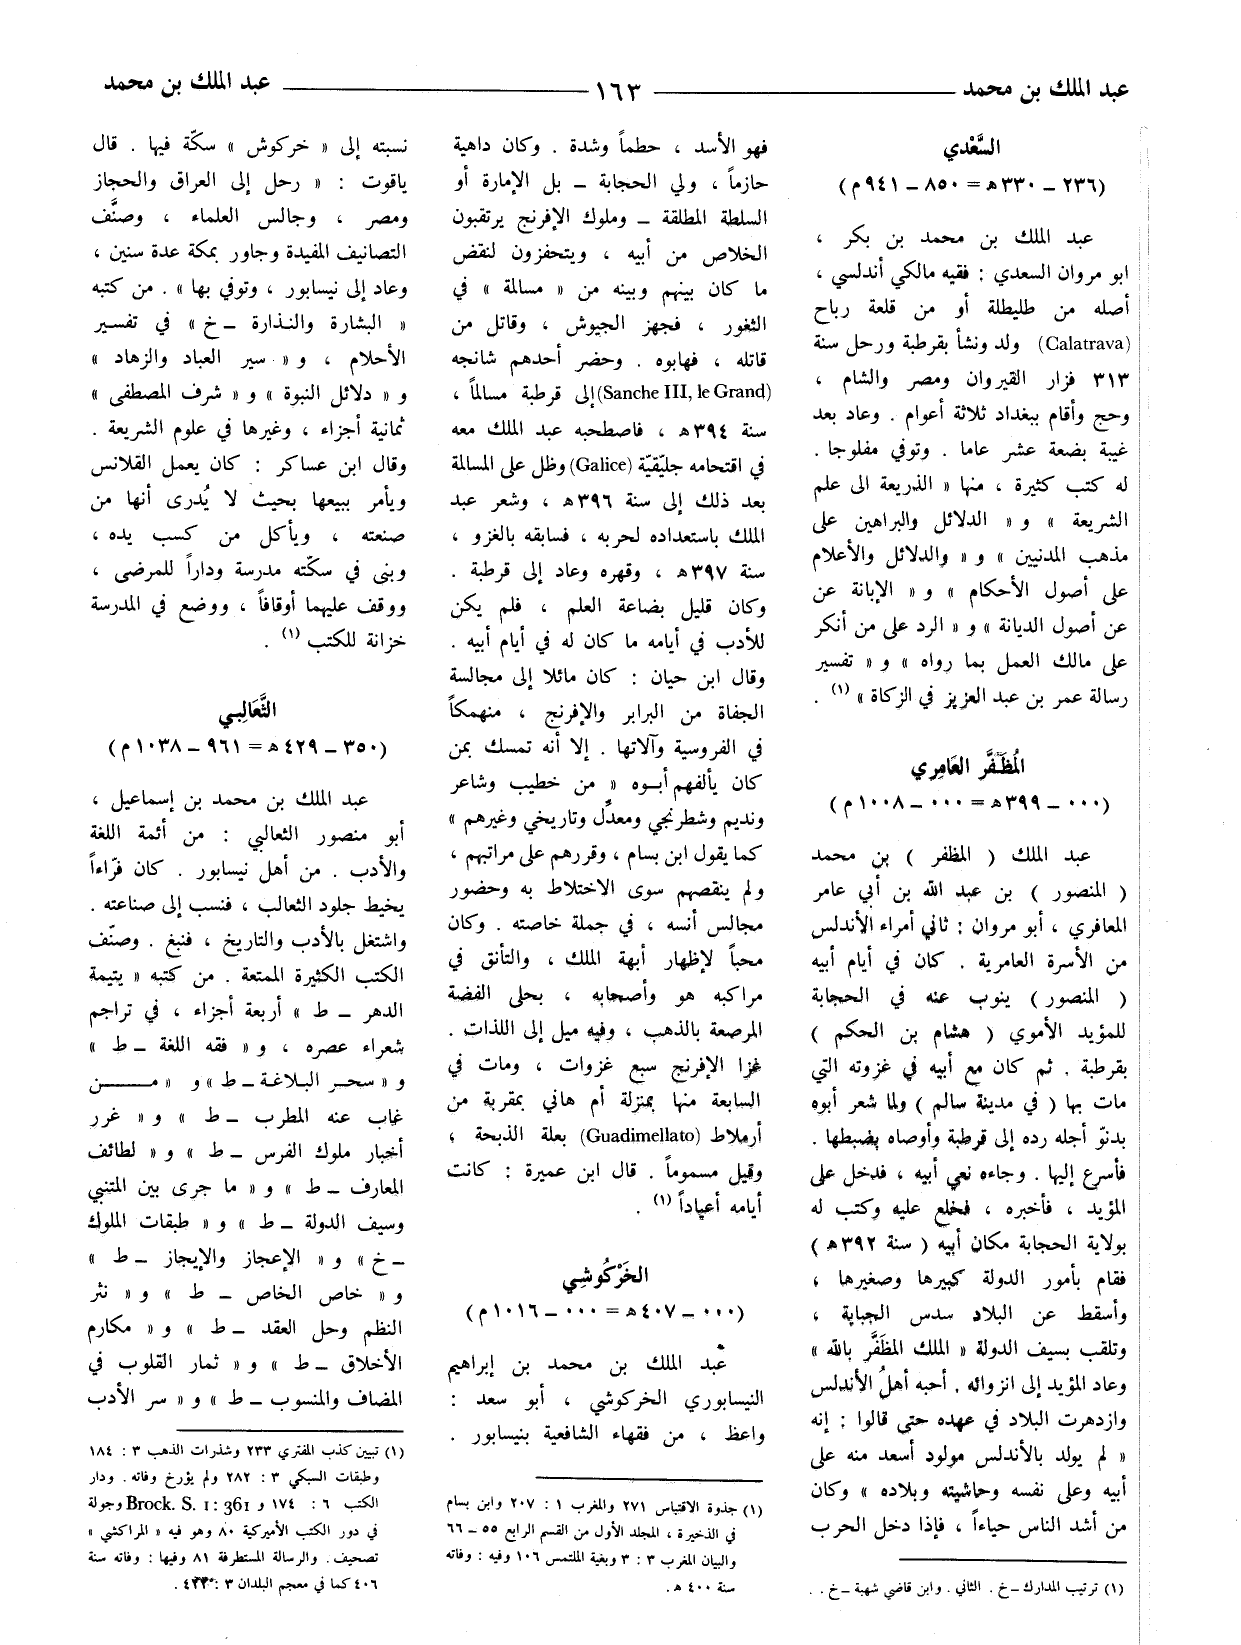 عبد الملك بن محمد ١٦٣ عبد الملك بن محمد
السَّعْدي
(٢٣٦ ــ ٣٣٠ هـ = ٨٥٠ ــ ٩٤١ م)
عبد الملك بن محمد بن بكر ،
ابو مروان السعدي : فقيه مالكي أندلسي ،
أصله من طليطلة أو من قلعة رباح
(Calatrava) ولد ونشأ بقرطبة ورحل سنة
٣١٣ فزار القيروان ومصر والشام ،
وحج وأقام ببغداد ثلاثة أعوام . وعاد بعد
غيبة بضعة عشر عاما . وتوفي مفلوجا .
له كتب كثيرة ، منها « الذريعة الى علم
الشريعة » و « الدلائل والبراهين على
مذهب المدنيين » و « والدلائل والأعلام
على أصول الأحكام » و « الإبانة عن
عن أصول الديانة » و « الرد على من أنكر
على مالك العمل بما رواه » و « تفسير
رسالة عمر بن عبد العزيز في الزكاة » (١) .
المُظَفَّر العَامِري
(٠٠٠ ــ ٣٩٩ هـ = ٠٠٠ ــ ١٠٠٨ م)
عبد الملك ( المظفر ) بن محمد
( المنصور ) بن عبد الله بن أبي عامر
المعافري ، أبو مروان : ثاني أمراء الأندلس
من الأسرة العامرية . كان في أيام أبيه
( المنصور ) ينوب عنه في الحجابة
للمؤيد الأموي ( هشام بن الحكم )
بقرطبة . ثم كان مع أبيه في غزوته التي
مات بها ( في مدينة سالم ) ولما شعر أبوه
بدنوّ أجله رده إلى قرطبة وأوصاه بضبطها .
فأسرع إليها . وجاءه نعي أبيه ، فدخل على
المؤيد ، فأخبره ، فخلع عليه وكتب له
بولاية الحجابة مكان أبيه ( سنة ٣٩٢ هـ )
فقام بأمور الدولة كبيرها وصغيرها ،
وأسقط عن البلاد سدس الجباية ،
وتلقب بسيف الدولة « الملك المظَفَّر بالله »
وعاد المؤيد إلى انزوائه . أحبه أهلُ الأندلس
وازدهرت البلاد في عهده حتى قالوا : إنه
« لم يولد بالأندلس مولود أسعد منه على
أبيه وعلى نفسه وحاشيته وبلاده » وكان
من أشد الناس حياءاً ، فإذا دخل الحرب
(١) ترتيب المدارك ــ خ . الثاني . وابن قاضي شهبة ــ خ . .
فهو الأسد ، حطماً وشدة . وكان داهية
حازماً ، ولي الحجابة ــ بل الإمارة أو
السلطة المطلقة ــ وملوك الإفرنج يرتقبون
الخلاص من أبيه ، ويتحفزون لنقض
ما كان بينهم وبينه من « مسالة » في
الثغور ، فجهز الجيوش ، وقاتل من
قاتله ، فهابوه . وحضر أحدهم شانجه
(Sanche III, le Grand) إلى قرطبة مسالماً ،
سنة ٣٩٤ هـ ، فاصطحبه عبد الملك معه
في اقتحامه جليّقيّة (Galice) وظل على المسالمة
بعد ذلك إلى سنة ٣٩٦ هـ ، وشعر عبد
الملك باستعداده لحربه ، فسابقه بالغزو ،
سنة ٣٩٧ هـ ، وقهره وعاد إلى قرطبة .
وكان قليل بضاعة العلم ، فلم يكن
للأدب في أيامه ما كان له في أيام أبيه .
وقال ابن حيان : كان مائلا إلى مجالسة
الجفاة من البرابر والإفرنج ، منهمكاً
في الفروسية وآلاتها . إلا أنه تمسك بمن
كان يألفهم أبوه « من خطيب وشاعر
ونديم وشطرنجي ومعدّل وتاريخي وغيرهم »
كما يقول ابن بسام ، وقررهم على مراتبهم ،
ولم ينقصهم سوى الاختلاط به وحضور
مجالس أنسه ، في جملة خاصته . وكان
محباً لإظهار أبهة الملك ، والتأنق في
مراكبه هو وأصحابه ، بحلى الفضة
المرصعة بالذهب ، وفيه ميل إلى اللذات .
غزا الإفرنج سبع غزوات ، ومات في
السابعة منها بمنزلة أم هاني بمقربة من
أرملاط (Guadimellato) بعلة الذبحة ،
وقيل مسموماً . قال ابن عميرة : كانت
أيامه أعياداً (١) .
الخَرْكُوشِي
(٠٠٠ ــ ٤٠٧ هـ = ٠٠٠ ــ ١٠١٦ م)
عبد الملك بن محمد بن إبراهيم
النيسابوري الخركوشي ، أبو سعد :
واعظ ، من فقهاء الشافعية بنيسابور .
(١) جذوة الاقتباس ٢٧١ والمغرب ١ : ٢٠٧ وابن بسام
في الذخيرة ، المجلد الأول من القسم الرابع ٥٥ ــ ٦٦
والبيان المغرب ٣ : ٣ وبغية الملتمس ١٠٦ وفيه : وفاته
سنة ٤٠٠ هـ .
نسبته إلى « خركوش » سكّة فيها . قال
ياقوت : « رحل إلى العراق والحجاز
ومصر ، وجالس العلماء ، وصنَّف
التصانيف المفيدة وجاور بمكة عدة سنين ،
وعاد إلى نيسابور ، وتوفي بها » . من كتبه
« البشارة والنذارة ــ خ » في تفسير
الأحلام ، و « سير العباد والزهاد »
و « دلائل النبوة » و « شرف المصطفى »
ثمانية أجزاء ، وغيرها في علوم الشريعة .
وقال ابن عساكر : كان يعمل القلانس
ويأمر ببيعها بحيث لا يُدرى أنها من
صنعته ، ويأكل من كسب يده ،
وبنى في سكّته مدرسة وداراً للمرضى ،
ووقف عليهما أوقافاً ، ووضع في المدرسة
خزانة للكتب (١) .
الثَّعَالِبي
(٣٥٠ ــ ٤٢٩ هـ = ٩٦١ ــ ١٠٣٨ م)
عبد الملك بن محمد بن إسماعيل ،
أبو منصور الثعالبي : من أئمة اللغة
والأدب . من أهل نيسابور . كان فرّاءاً
يخيط جلود الثعالب ، فنسب إلى صناعته .
واشتغل بالأدب والتاريخ ، فنبغ . وصنّف
الكتب الكثيرة الممتعة . من كتبه « يتيمة
الدهر ــ ط » أربعة أجزاء ، في تراجم
شعراء عصره ، و « فقه اللغة ــ ط »
و « سحر البلاغة ــ ط » و « مــــن
غاب عنه المطرب ــ ط » و « غرر
أخبار ملوك الفرس ــ ط » و « لطائف
المعارف ــ ط » و « ما جرى بين المتنبي
وسيف الدولة ــ ط » و « طبقات الملوك
ــ خ » و « الإعجاز والإيجاز ــ ط »
و « خاص الخاص ــ ط » و « نثر
النظم وحل العقد ــ ط » و « مكارم
الأخلاق ــ ط » و « ثمار القلوب في
المضاف والمنسوب ــ ط » و « سر الأدب
(١) تبيين كذب المفتري ٢٣٣ وشذرات الذهب ٣ : ١٨٤
وطبقات السبكي ٣ : ٢٨٢ ولم يؤرخ وفاته . ودار
الكتب ٦ : ١٧٤ و Brock. S. 1 : 361 وجولة
في دور الكتب الأميركية ٨٠ وهو فيه « المراكشي »
تصحيف . والرسالة المستطرفة ٨١ وفيها : وفاته سنة
٤٠٦ كما في معجم البلدان ٣ :